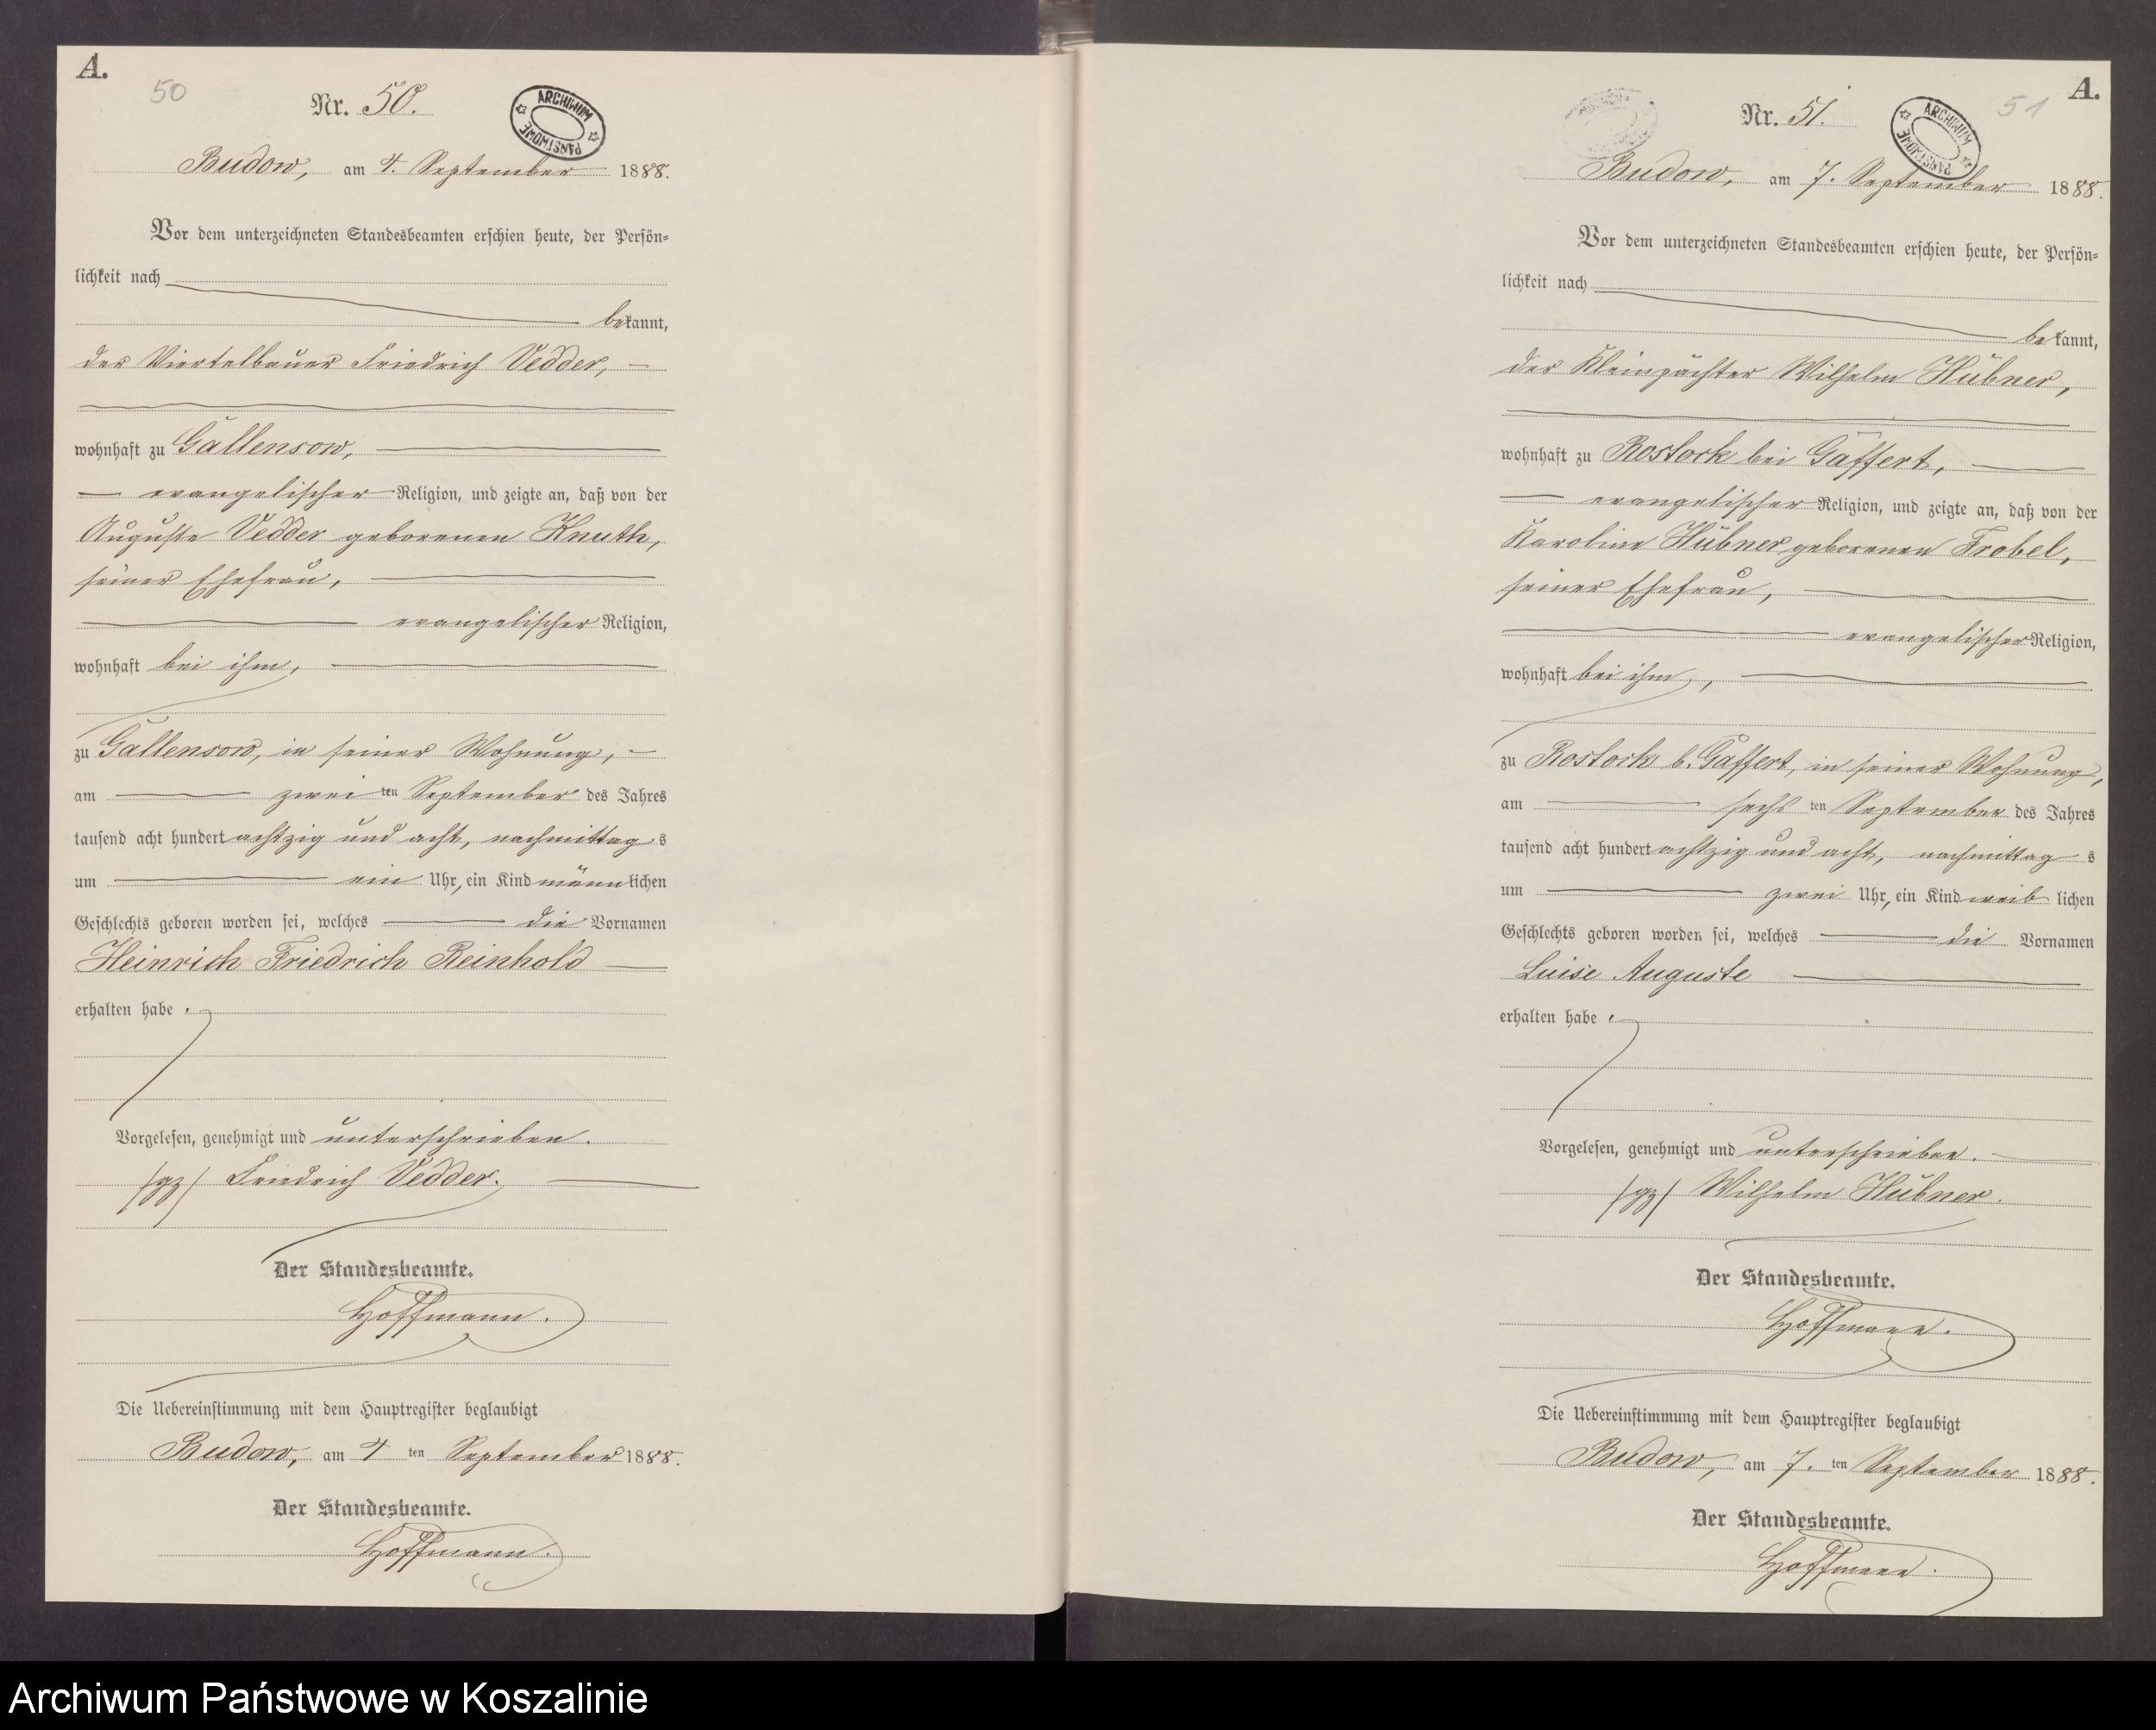 A.
50
Nr. 50.
ARCHIWUM PAŃSTWOWE
Budow, am 4. September 1888.
Vor dem unterzeichneten Standesbeamten erschien heute, der Persön-
lichkeit nach
bekannt,
der Viertelbauer Friedrich Vedder,
wohnhaft zu Gallensow,
evangelischer Religion, und zeigte an, daß von der
Auguste Vedder geborenen Knuth,
seiner Ehefrau,
evangelischer Religion,
wohnhaft bei ihm,
zu Gallensow, in seiner Wohnung,
am zweiten September des Jahres
tausend acht hundert achtzig und acht, nachmittags
um ein Uhr, ein Kind männlichen
Geschlechts geboren worden sei, welches die Vornamen
Heinrich Friedrich Reinhold
erhalten habe.
Vorgelesen, genehmigt und unterschrieben.
/gz/ Friedrich Vedder.
Der Standesbeamte.
Hoffmann.
Die Uebereinstimmung mit dem Hauptregister beglaubigt
Budow, am 4 ten September 1888.
Der Standesbeamte.
Hoffmann.
A.
51
Nr. 51.
ARCHIWUM PAŃSTWOWE
Budow, am 7. September 1888.
Vor dem unterzeichneten Standesbeamten erschien heute, der Persön-
lichkeit nach
bekannt,
der Kleinpächter Wilhelm Hübner,
wohnhaft zu Rostock bei Gaffert,
evangelischer Religion, und zeigte an, daß von der
Karoline Hübner geborenen Frobel,
seiner Ehefrau,
evangelischer Religion,
wohnhaft bei ihm,
zu Rostock b. Gaffert, in seiner Wohnung,
am sechsten September des Jahres
tausend acht hundert achtzig und acht, nachmittags
um zwei Uhr, ein Kind weiblichen
Geschlechts geboren worden sei, welches die Vornamen
Luise Auguste
erhalten habe.
Vorgelesen, genehmigt und unterschrieben.
/gz/ Wilhelm Hübner.
Der Standesbeamte.
Hoffmann.
Die Uebereinstimmung mit dem Hauptregister beglaubigt
Budow, am 7. ten September 1888.
Der Standesbeamte.
Hoffmann.
Archiwum Państwowe w Koszalinie